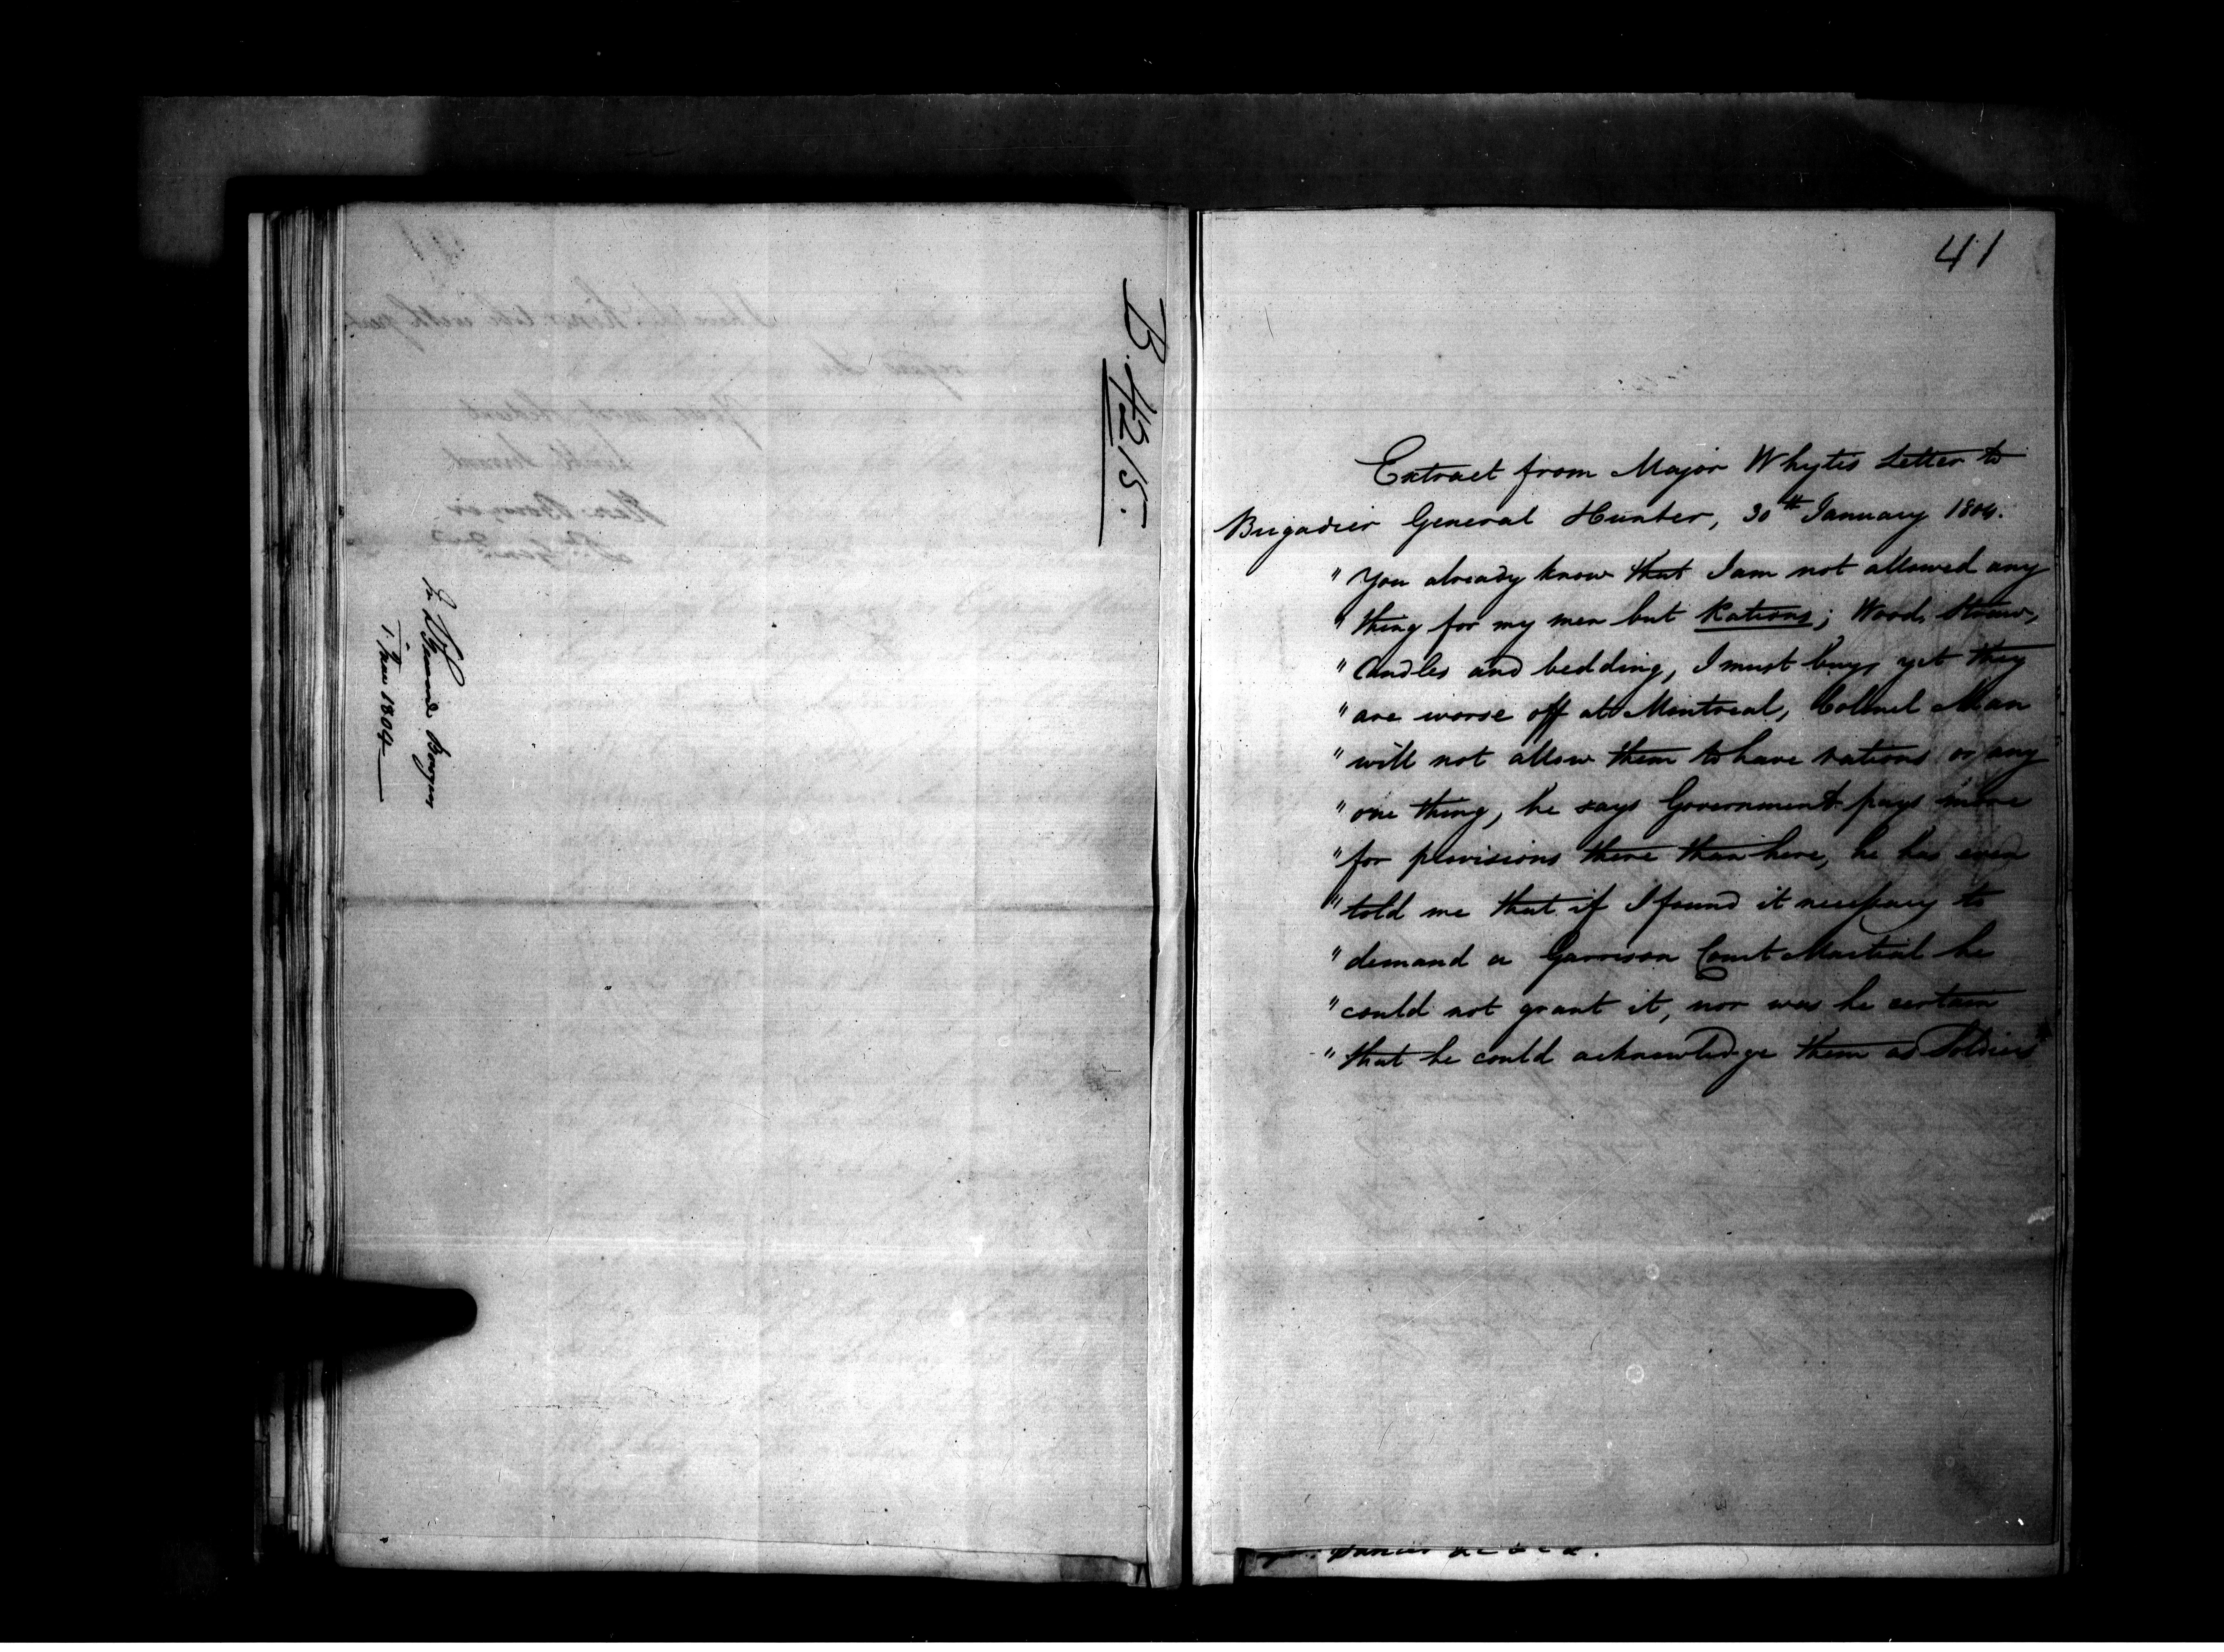 B. 4215.
1. June 1804
41
Extract from Major Whytes Letter to
Brigadier General Hunter, 30th January 1804.
" You already know that I am not allowed any
" thing for my men but Rations; Wood, Straw,
" Candles and bedding, I must buy, yet they
" are worse off at Montreal, Colonel Man
" will not allow them to have rations or any
" one thing, he says Government pays more
" for provisions there than here, he has even
" told me that if I found it necessary to
" demand a Garrison Court Martial he
" could not grant it, nor was he certain
" that he could acknowledge them as Soldiers